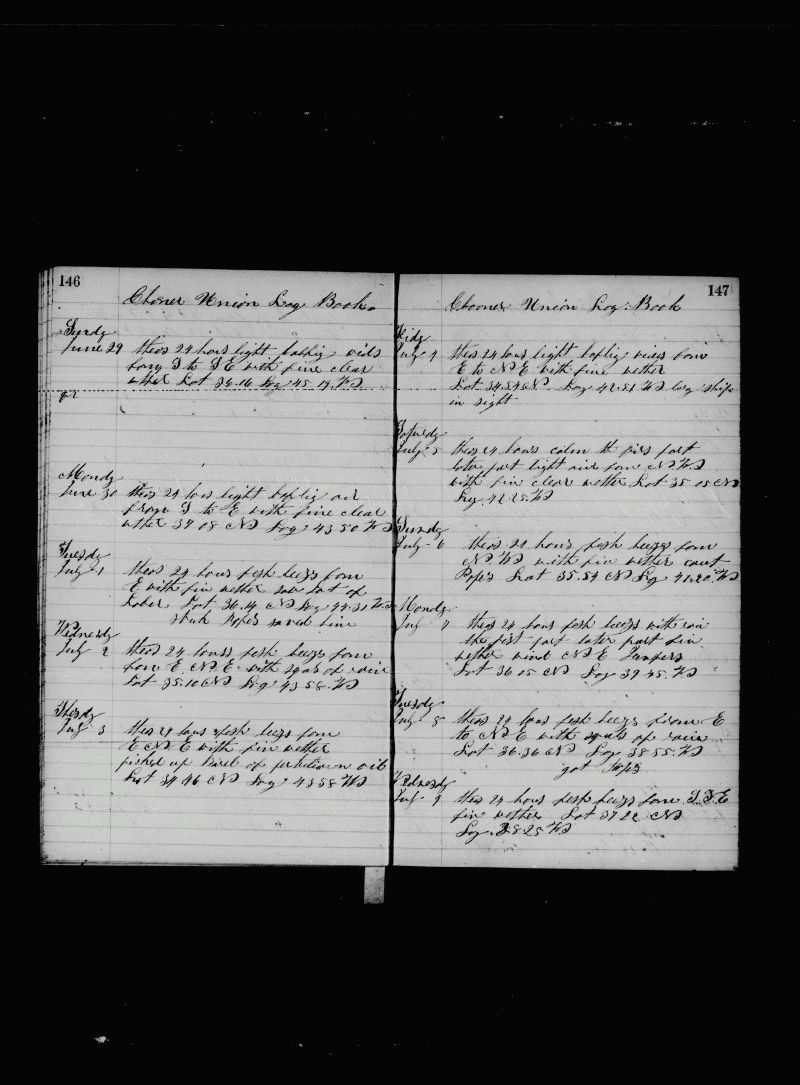 146
Choner Union Log Book
Sundy
June 29 theas 24 hours light bafling vids
from S to S E with fine clear
wther Lat 34.16 Log 45.19 W D
Mondy
June 30 theas 24 hors light baflig air
from S to E with fine clear
wther 34 08 ND Log 43 50 W D
Tuesdy
July 1 theas 24 hours fresh beezs fom
E with fin wether saw lot of
Lat 36.14 ND Log 44.31 W D
struk Rops saved line
Wednesdy
July 2 theas 24 hours fresh beezs fom
fom E N E with sqals of rain
Lat 35.10 ND Log 43 58 W D
Thersdy
July 3 theas 24 hours fresh beezs fom
E N E with fin wether
picked up barel of oil
Lat 34 46 ND Log 43 58 W D
147
Choones Union Log Book
Fridy
July 4 theas 24 hous light baflig vids fom
E to N E with fine wether
Lat 34.54 N Log 42.51 W D ships
in sight
Saturdy
July 5 theas 24 hours calm th first part
later part light air fom N W D
with fin clear wether Lat 35 05 ND
Log 42.25 W D
Sundy
July 6 theas 24 hours fresh beezs fom
N W D with fin wether
Rops Lat 35.54 ND Log 41.20 W D
Mondy
July 7 theas 24 hous fresh beezs with rain
the first part later part fin
wether wind N E
Lat 36 05 ND Log 39 45 W D
Tuesdy
July 8 theas 24 hous fresh beezs from E
to N E with sqals of rain
Lat 36.36 ND Log 38 55 W D
got Rops
Wednesdy
July 9 theas 24 hous fresh beezs fom S S E
fin wether Lat 37 22 ND
Log 38 25 W D